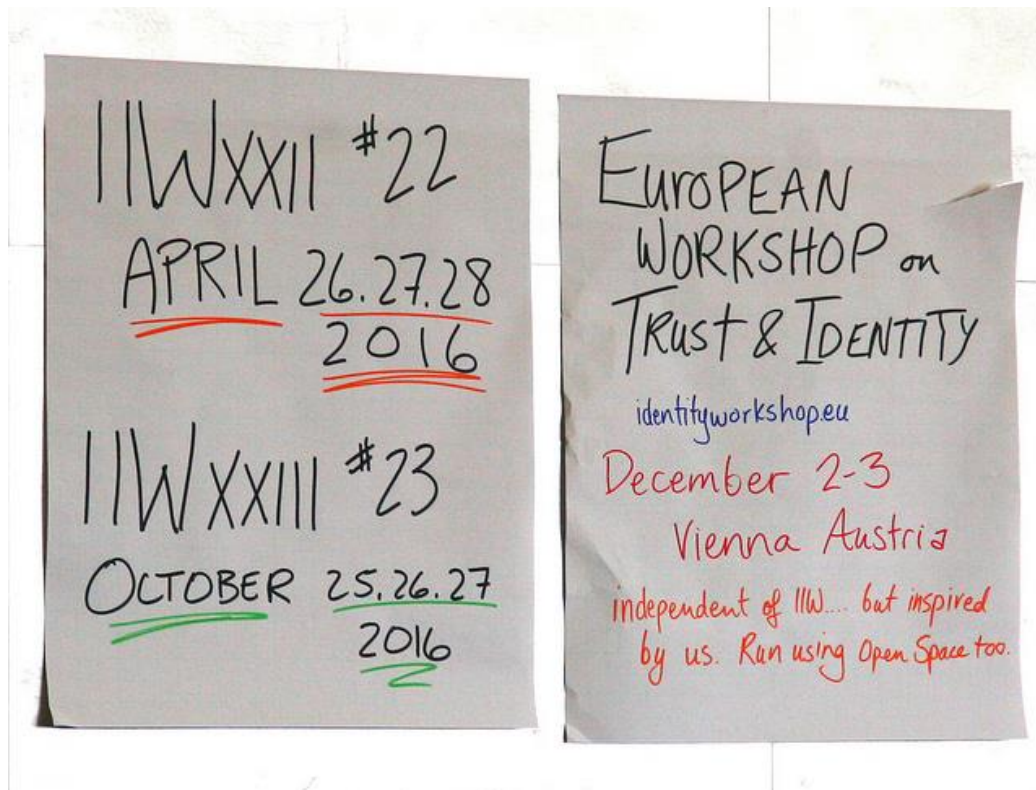 IIWXXII #22
APRIL 26.27.28
2016
IIWXXIII #23
OCTOBER 25.26.27
2016
EUROPEAN
WORKSHOP on
TRUST & IDENTITY
identityworkshop.eu
December 2-3
Vienna Austria
independent of IIW.... but inspired
by us. Run using Open Space too.